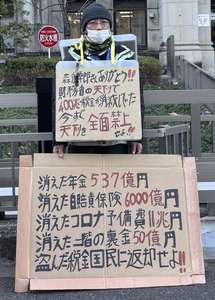 防火水槽
ありがとう!!
財務省の天下りで
税金が消滅した
今すぐ
天下り全面禁止
せよ!!
消えた年金537億円
消えた自賠責保険6000億円
消えたコロナ予備費11兆円
消えた二階の裏金50億円
盗んだ税金国民に返却せよ!!